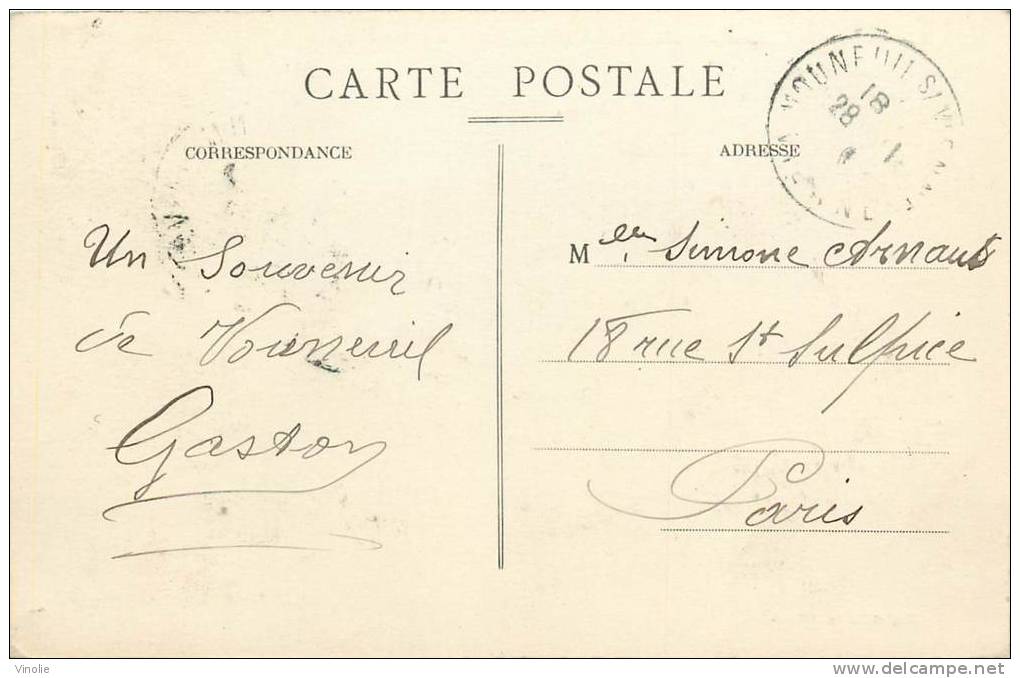 CARTE POSTALE
CORRESPONDANCE
ADRESSE
VOUNEUIL S/VIENNE
18
28
VIENNE
Un Souvenir
de Vouneuil
Gaston
Mlle Simone Arnault
18 rue St Sulpice
Paris
Vinolie
delcampe.net